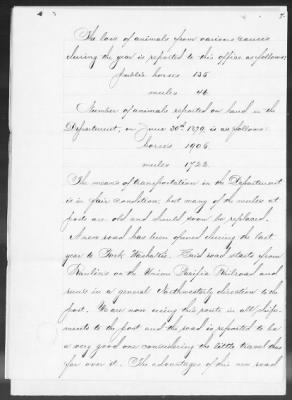 The loss of animals from various causes
during the year is reported to this office as follows;
public horses 135
mules 46
Number of animals reported on hand in the
Department, on June 30th 1879 is as follows:
horses 1906
mules 1722
The means of transportation in the Department
is in fair condition, but many of the mules at
posts are old and should soon be replaced.
A new road has been opened during the last
year to Fort Washakie. Said road starts from
Rawlins on the Union Pacific Railroad and
runs in a general Northwesterly direction to the
post. We are now using this route in all ship-
ments to the post and the road is reported to be
a very good one considering the little travel thus
far over it. The advantages of this new road